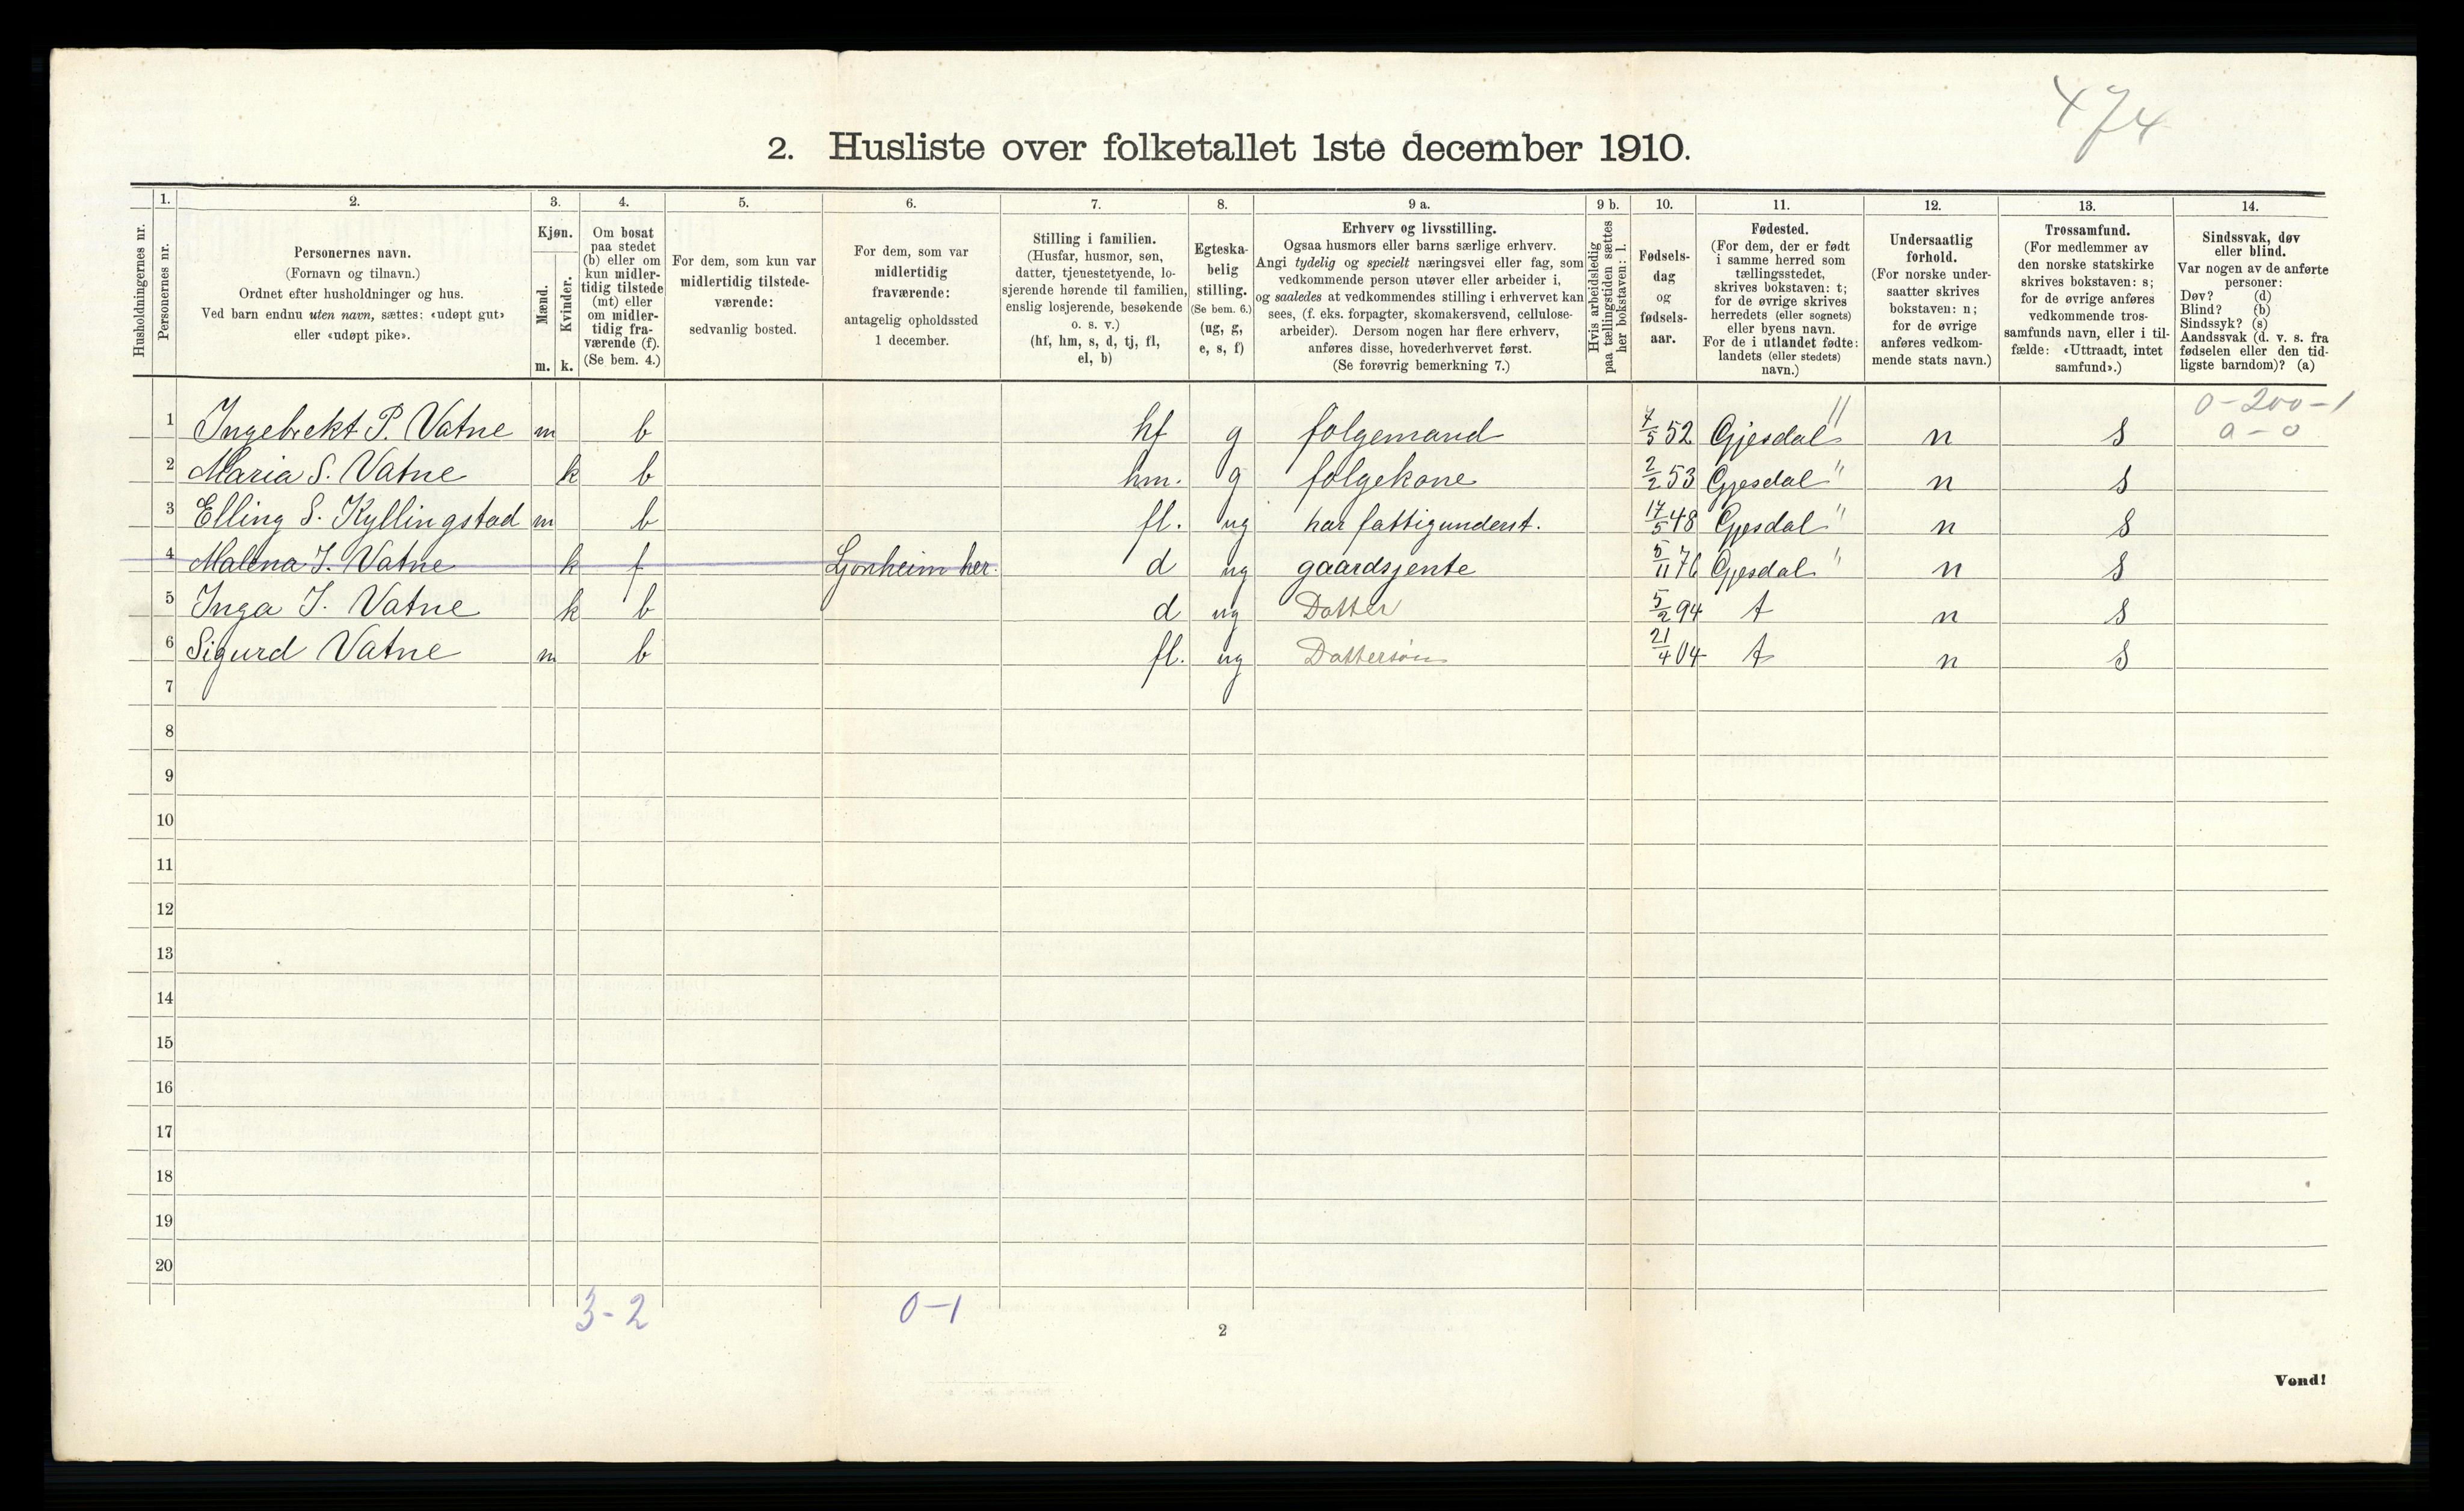 474
2. Husliste over folketallet 1ste december 1910.
Husholdningernes nr.
1. Personernes nr.
2. Personernes navn.
(Fornavn og tilnavn.)
Ordnet efter husholdninger og hus.
Ved barn endnu uten navn, sættes: «udøpt gut»
eller «udøpt pike».
3. Kjøn.
Mænd. m.
Kvinder. k.
4. Om bosat
paa stedet
(b) eller om
kun midler-
tidig tilstede
(mt) eller
om midler-
tidig fra-
værende (f).
(Se bem. 4.)
5. For dem, som kun var
midlertidig tilstede-
værende:
sedvanlig bosted.
6. For dem, som var
midlertidig
fraværende:
antagelig opholdssted
1 december.
7. Stilling i familien.
(Husfar, husmor, søn,
datter, tjenestetyende, lo-
sjerende hørende til familien,
enslig losjerende, besøkende
o. s. v.)
(hf, hm, s, d, tj, fl,
el, b)
8. Egteska-
belig
stilling.
(Se bem. 6.)
(ug, g,
e, s, f)
9 a. Erhverv og livsstilling.
Ogsaa husmors eller barns særlige erhverv.
Angi tydelig og specielt næringsvei eller fag, som
vedkommende person utøver eller arbeider i,
og saaledes at vedkommendes stilling i erhvervet kan
sees, (f. eks. forpagter, skomakersvend, cellulose-
arbeider). Dersom nogen har flere erhverv,
anføres disse, hovederhvervet først.
(Se forøvrig bemerkning 7.)
9 b. Hvis arbeidsledig
paa tællingstiden sættes
her bokstaven: l.
10. Fødsels-
dag
og
fødsels-
aar.
11. Fødested.
(For dem, der er født
i samme herred som
tællingsstedet,
skrives bokstaven: t;
for de øvrige skrives
herredets (eller sognets)
eller byens navn.
For de i utlandet fødte:
landets (eller stedets)
navn.)
12. Undersaatlig
forhold.
(For norske under-
saatter skrives
bokstaven: n;
for de øvrige
anføres vedkom-
mende stats navn.)
13. Trossamfund.
(For medlemmer av
den norske statskirke
skrives bokstaven: s;
for de øvrige anføres
vedkommende tros-
samfunds navn, eller i til-
fælde: «Uttraadt, intet
samfund».)
14. Sindssvak, døv
eller blind.
Var nogen av de anførte
personer:
Døv? (d)
Blind? (b)
Sindssyk? (s)
Aandssvak (d. v. s. fra
fødselen eller den tid-
ligste barndom)? (a)
0-200-1
0-0
1 Ingebrekt P. Vatne m b hf g følgemand 7/5 52 Gjesdal " n s
2 Maria S. Vatne k b hm. g følgekone 2/2 53 Gjesdal " n s
3 Elling S. Kyllingstad m b fl. ug har fattigunderst. 17/5 48 Gjesdal " n s
4 Malena I. Vatne k f her. d ug gaardsjente 5/11 76 Gjesdal " n s
5 Inga I. Vatne k b d ug Datter 5/2 94 t n s
6 Sigurd Vatne m b fl. ug Dattersøn 21/4 04 t n s
7
8
9
10
11
12
13
14
15
16
17
18
19
20
3-2 0-1
2
Vend!